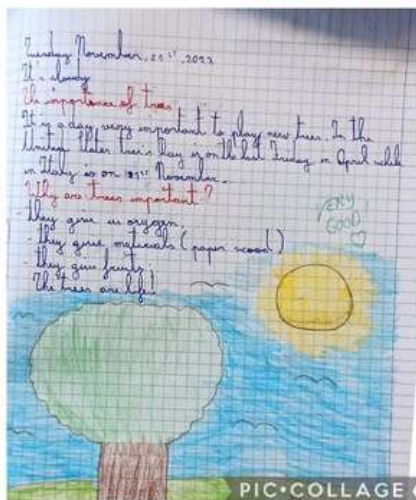 Tuesday November, 21st, 2023
It's cloudy
The importance of trees
It is a day very important to play new trees. In the
United States tree's Day is on the last Friday in April while
in Italy is on 21st November.
Why are trees important?
- they give us oxygen.
- they give materials (paper wood)
- they give fruits
The trees are life!
VERY
GOOD
PIC•COLLAGE